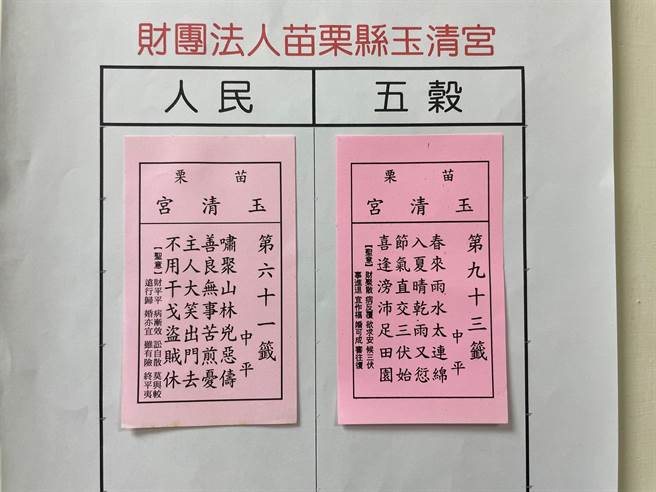 財團法人苗栗縣玉清宮
人民
五穀
苗栗
玉清宮
第六十一籤
中平
嘯聚山林兇惡儔
善良無事苦煎憂
主人大笑出門去
不用干戈盜賊休
【聖意】財平平 病漸效 訟自散 莫與較
遠行歸 婚亦宜 雖有險 終平夷
苗栗
玉清宮
第九十三籤
中平
春來雨水太連綿
入夏晴乾雨又愆
節氣直交三伏始
喜逢滂沛足田園
【聖意】財聚散 病反覆 欲求安 候三伏
事進退 宜作福 婚可成 審往復